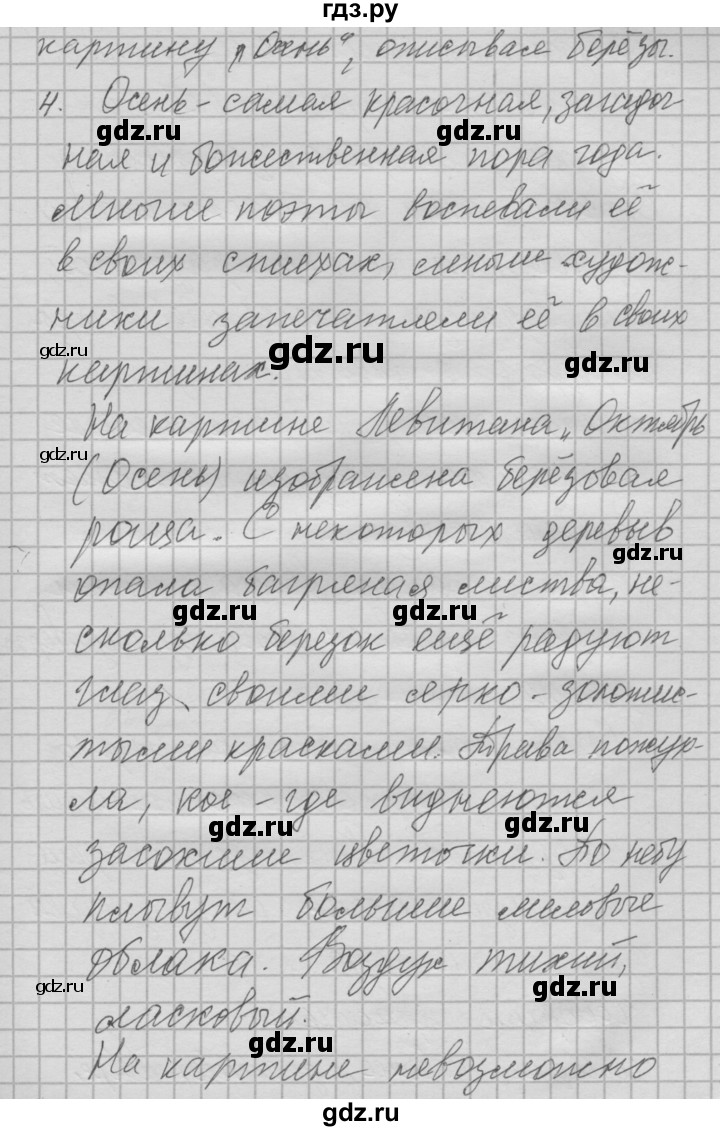 гдз.ру
картину „Осень", описывал берёзы.
4. Осень - самая красочная, загадоч
gdz.ru gdz.ru
ная и божественная пора года.
Многие поэты воспевали её
в своих стихах, многие худож-
ники запечатлели её в своих
gdz.ru gdz.ru gdz.ru
картинах.
На картине Левитана „Октябрь
gdz.ru
(Осень) изображена берёзовая
роща. С некоторых деревьев
gdz.ru
опала багряная листва, не-
gdz.ru gdz.ru
сколько березок ещё радуют
глаз своими ярко - золотис-
тыми красками. Трава пожух-
ла, кое - где виднеются
gdz.ru gdz.ru
засохшие цветочки. По небу
плывут большие меловые
облака. Воздух тихий,
gdz.ru gdz.ru
ласковый.
gdz.ru
На картине невозможно
gdz.ru